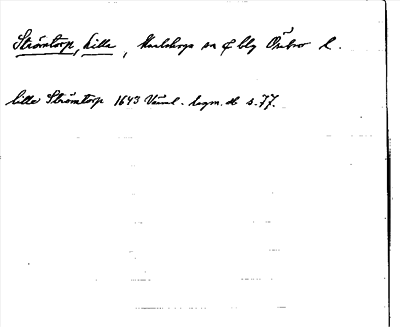 Strömtorp, Lilla, Karlskoga sn o blg Örebro l.
lilla Strömtorp 1643 Värml. s. 77.